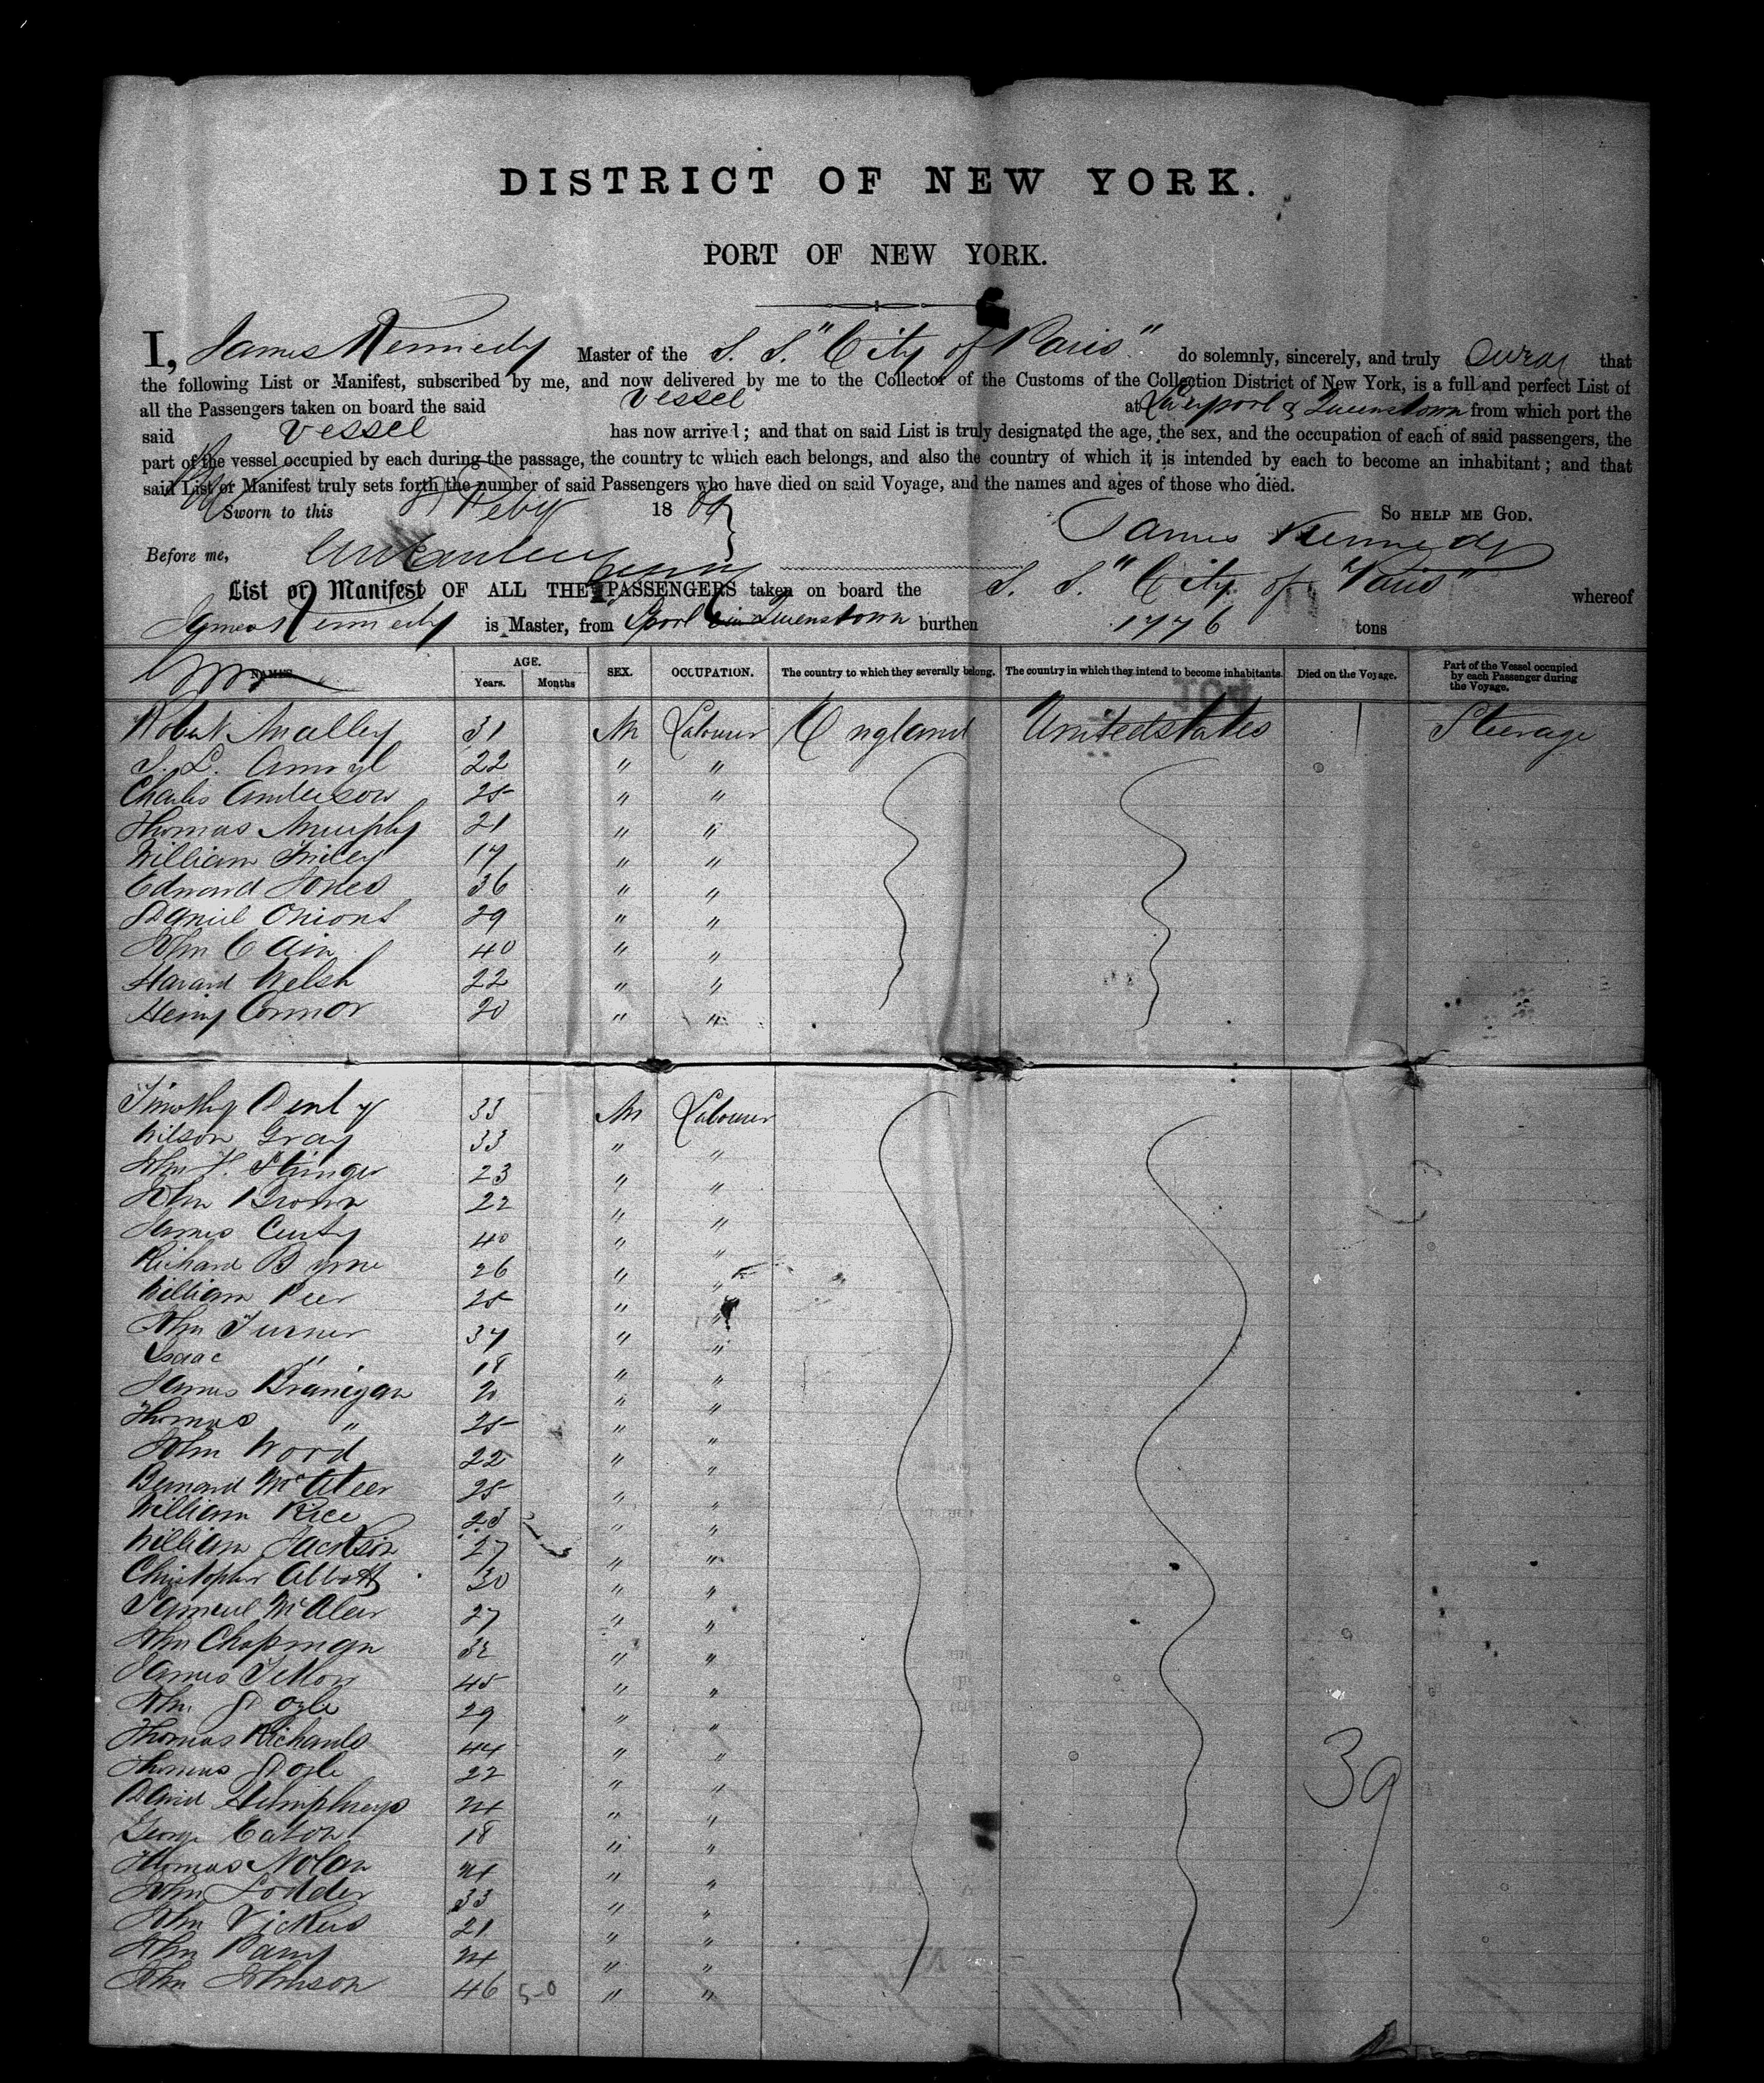 DISTRICT OF NEW YORK.
PORT OF NEW YORK.
I, James Kennedy Master of the S. S. "City of Paris" do solemnly, sincerely, and truly swear that
the following List or Manifest, subscribed by me, and now delivered by me to the Collector of the Customs of the Collection District of New York, is a full and perfect List of
all the Passengers taken on board the said Vessel at Liverpool & Queenstown from which port the
said Vessel has now arrived; and that on said List is truly designated the age, the sex, and the occupation of each of said passengers, the
part of the vessel occupied by each during the passage, the country to which each belongs, and also the country of which it is intended by each to become an inhabitant; and that
said List or Manifest truly sets forth the number of said Passengers who have died on said Voyage, and the names and ages of those who died.
Sworn to this 8 Feby 1869 SO HELP ME GOD.
Before me, James Kennedy
List or Manifest OF ALL THE PASSENGERS taken on board the S. S. "City of Paris" whereof
James Kennedy is Master, from Lpool Queenstown burthen 1776 tons
NAMES. AGE. Years. Months SEX. OCCUPATION. The country to which they severally belong. The country in which they intend to become inhabitants. Died on the Voyage. Part of the Vessel occupied by each Passenger during the Voyage.
Robert Malley 31 M Labourer England United States Steerage
22 " "
Charles Anderson 25 " "
Thomas Murphy 21 " "
William 17 " "
Edward Jones 36 " "
Daniel Onions 29 " "
John Cain 40 " "
Welsh 22 " "
Henry Connor 20 " "
Timothy 33 M Labourer
Wilson Gray 33 " "
John 23 " "
John Brown 22 " "
James 40 " "
Richard Byrne 26 " "
William Peer 25 " "
John Turner 37 " "
Isaac " 18 " "
James Branigan 20 " "
Thomas " 25 " "
John Wood 22 " "
Bernard McAteer 25 " "
William Rice 25 " "
William Jackson 27 " "
Christopher Abbott 30 " "
Samuel McAleer 27 " "
John Chapman 32 " "
James 45 " "
John Doyle 29 " "
Thomas Richards 44 " "
Thomas Doyle 22 " "
David Humphreys 24 " "
George Eaton 18 " "
Thomas Nolan 24 " "
John Lodder 33 " "
John Vickers 21 " "
John 24 " "
John Johnson 46 5-0 " "
39